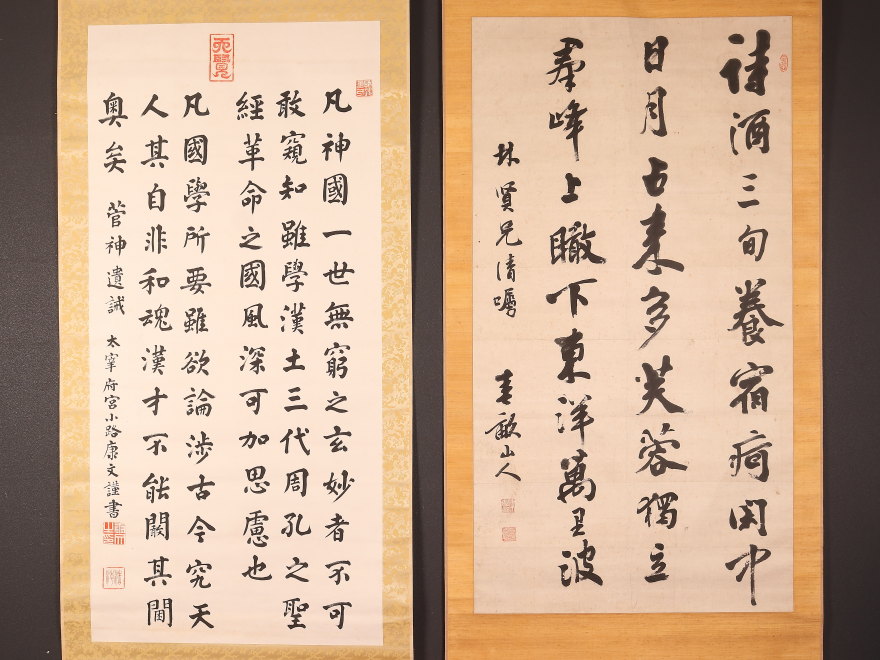 詩酒三旬養宿痾閑中
日月占来多芙蓉獨立
羣峰上瞰下東洋萬里波
林賢兄清嘱
春畝山人
天覽
凡神國一世無窮之玄妙者不可
敢窺知雖學漢土三代周孔之聖
經革命之國風深可加思慮也
凡國學所要雖欲論渉古今究天
人其自非和魂漢才不能闞其閫
奥矣 菅神遺誡 太宰府宮小路康文謹書